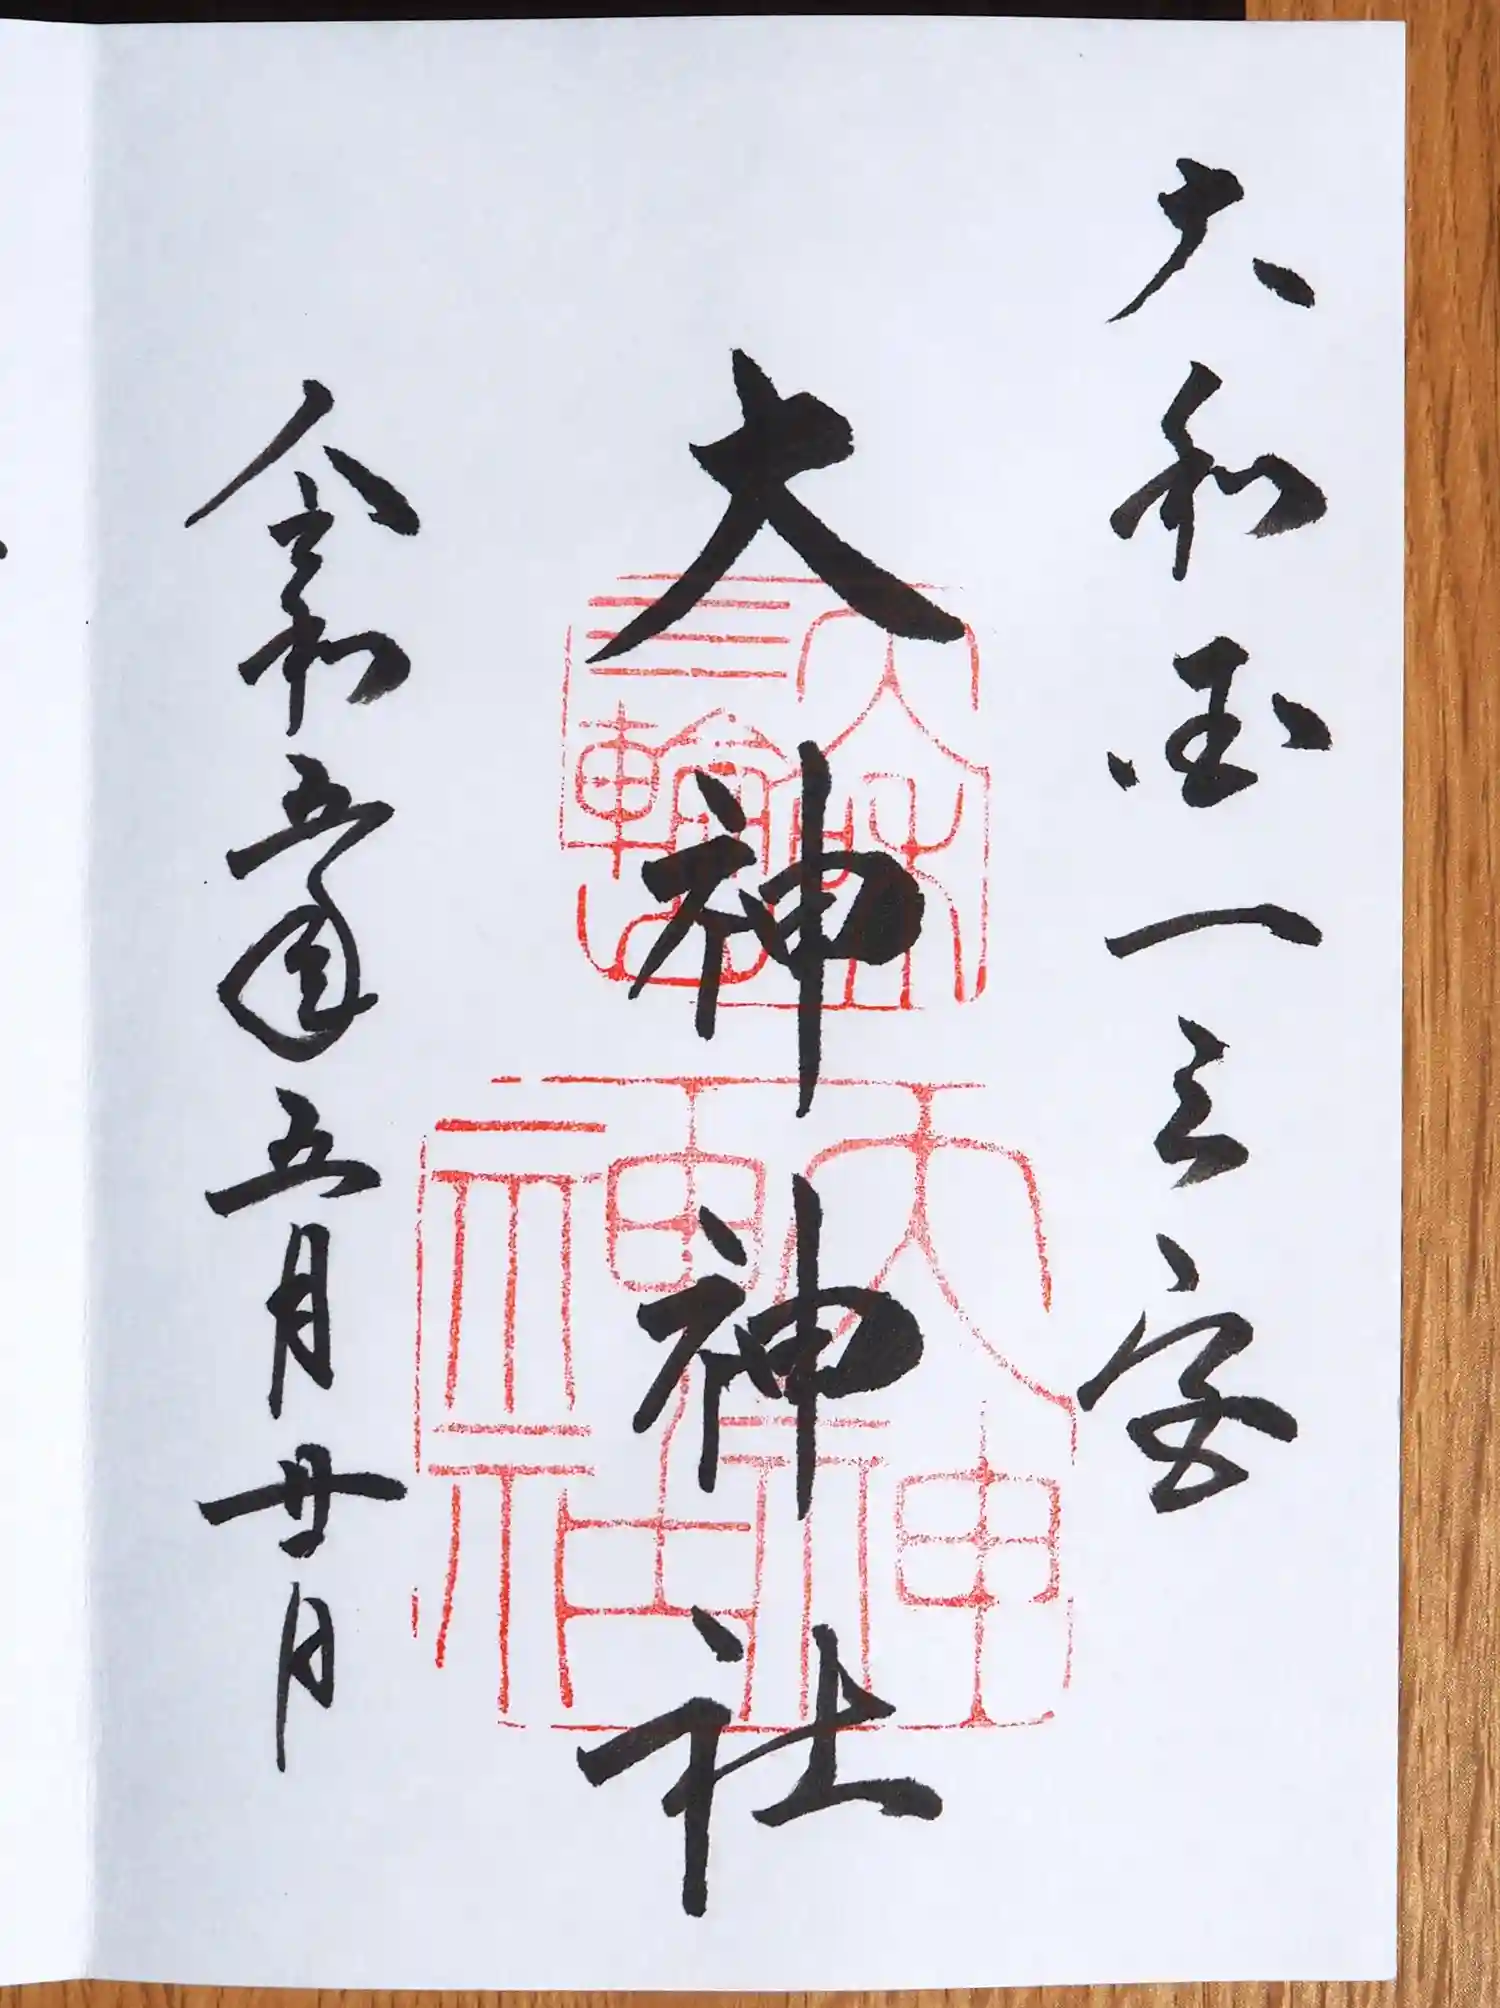 大和国一之宮
大神神社
令和五年五月廿日
三輪
大神神社